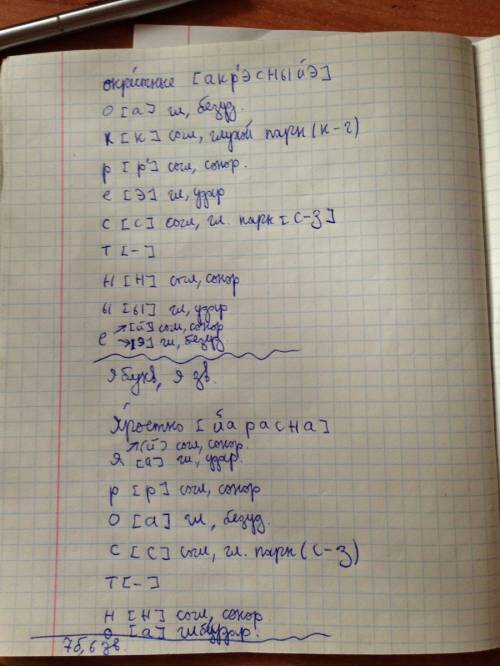 окрестные [акр'эсныйэ]
О [а] гл, безуд.
К [к] согл, глухой парн (к-г)
р [р'] согл, сонор.
е [э] гл, удар
с [с] согл, гл. парн [с-з]
т [-]
н [н] согл, сонор
ы [ы] гл, удар
е →[й] согл, сонор
→[э] гл, безуд
9 букв, 9 зв.
Яростно [йарасна]
Я →[й] согл, сонор.
[а] гл, удар.
р [р] согл, сонор
О [а] гл, безуд.
С [с] согл, гл. парн (с-з)
Т [-]
Н [н] согл, сонор.
о [а] гл безудар.
7б, 6 зв.